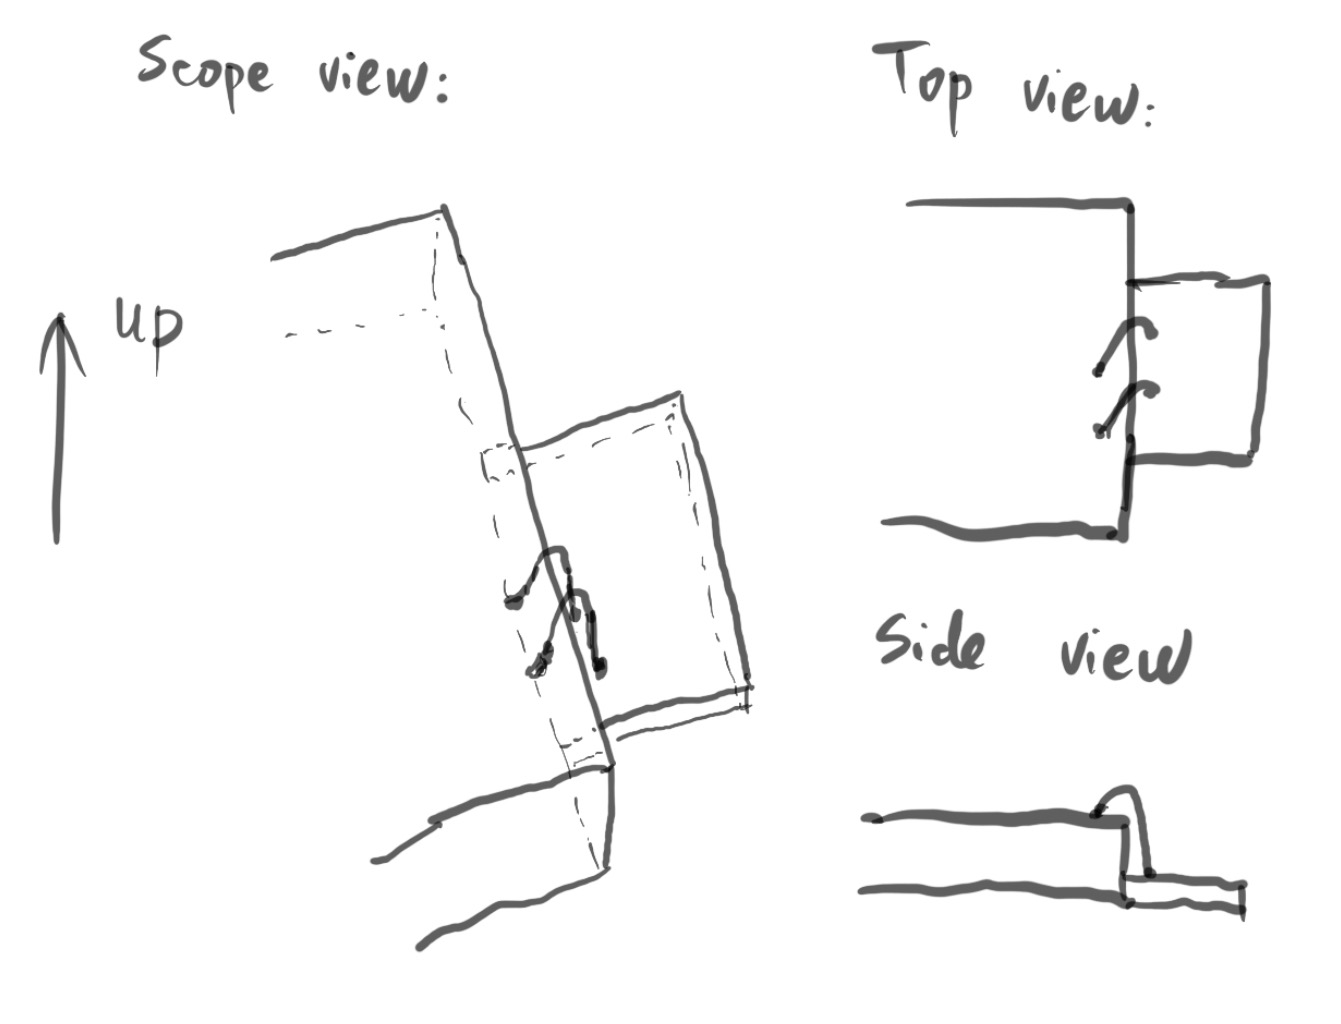 Scope view:
Top view:
up
Side view